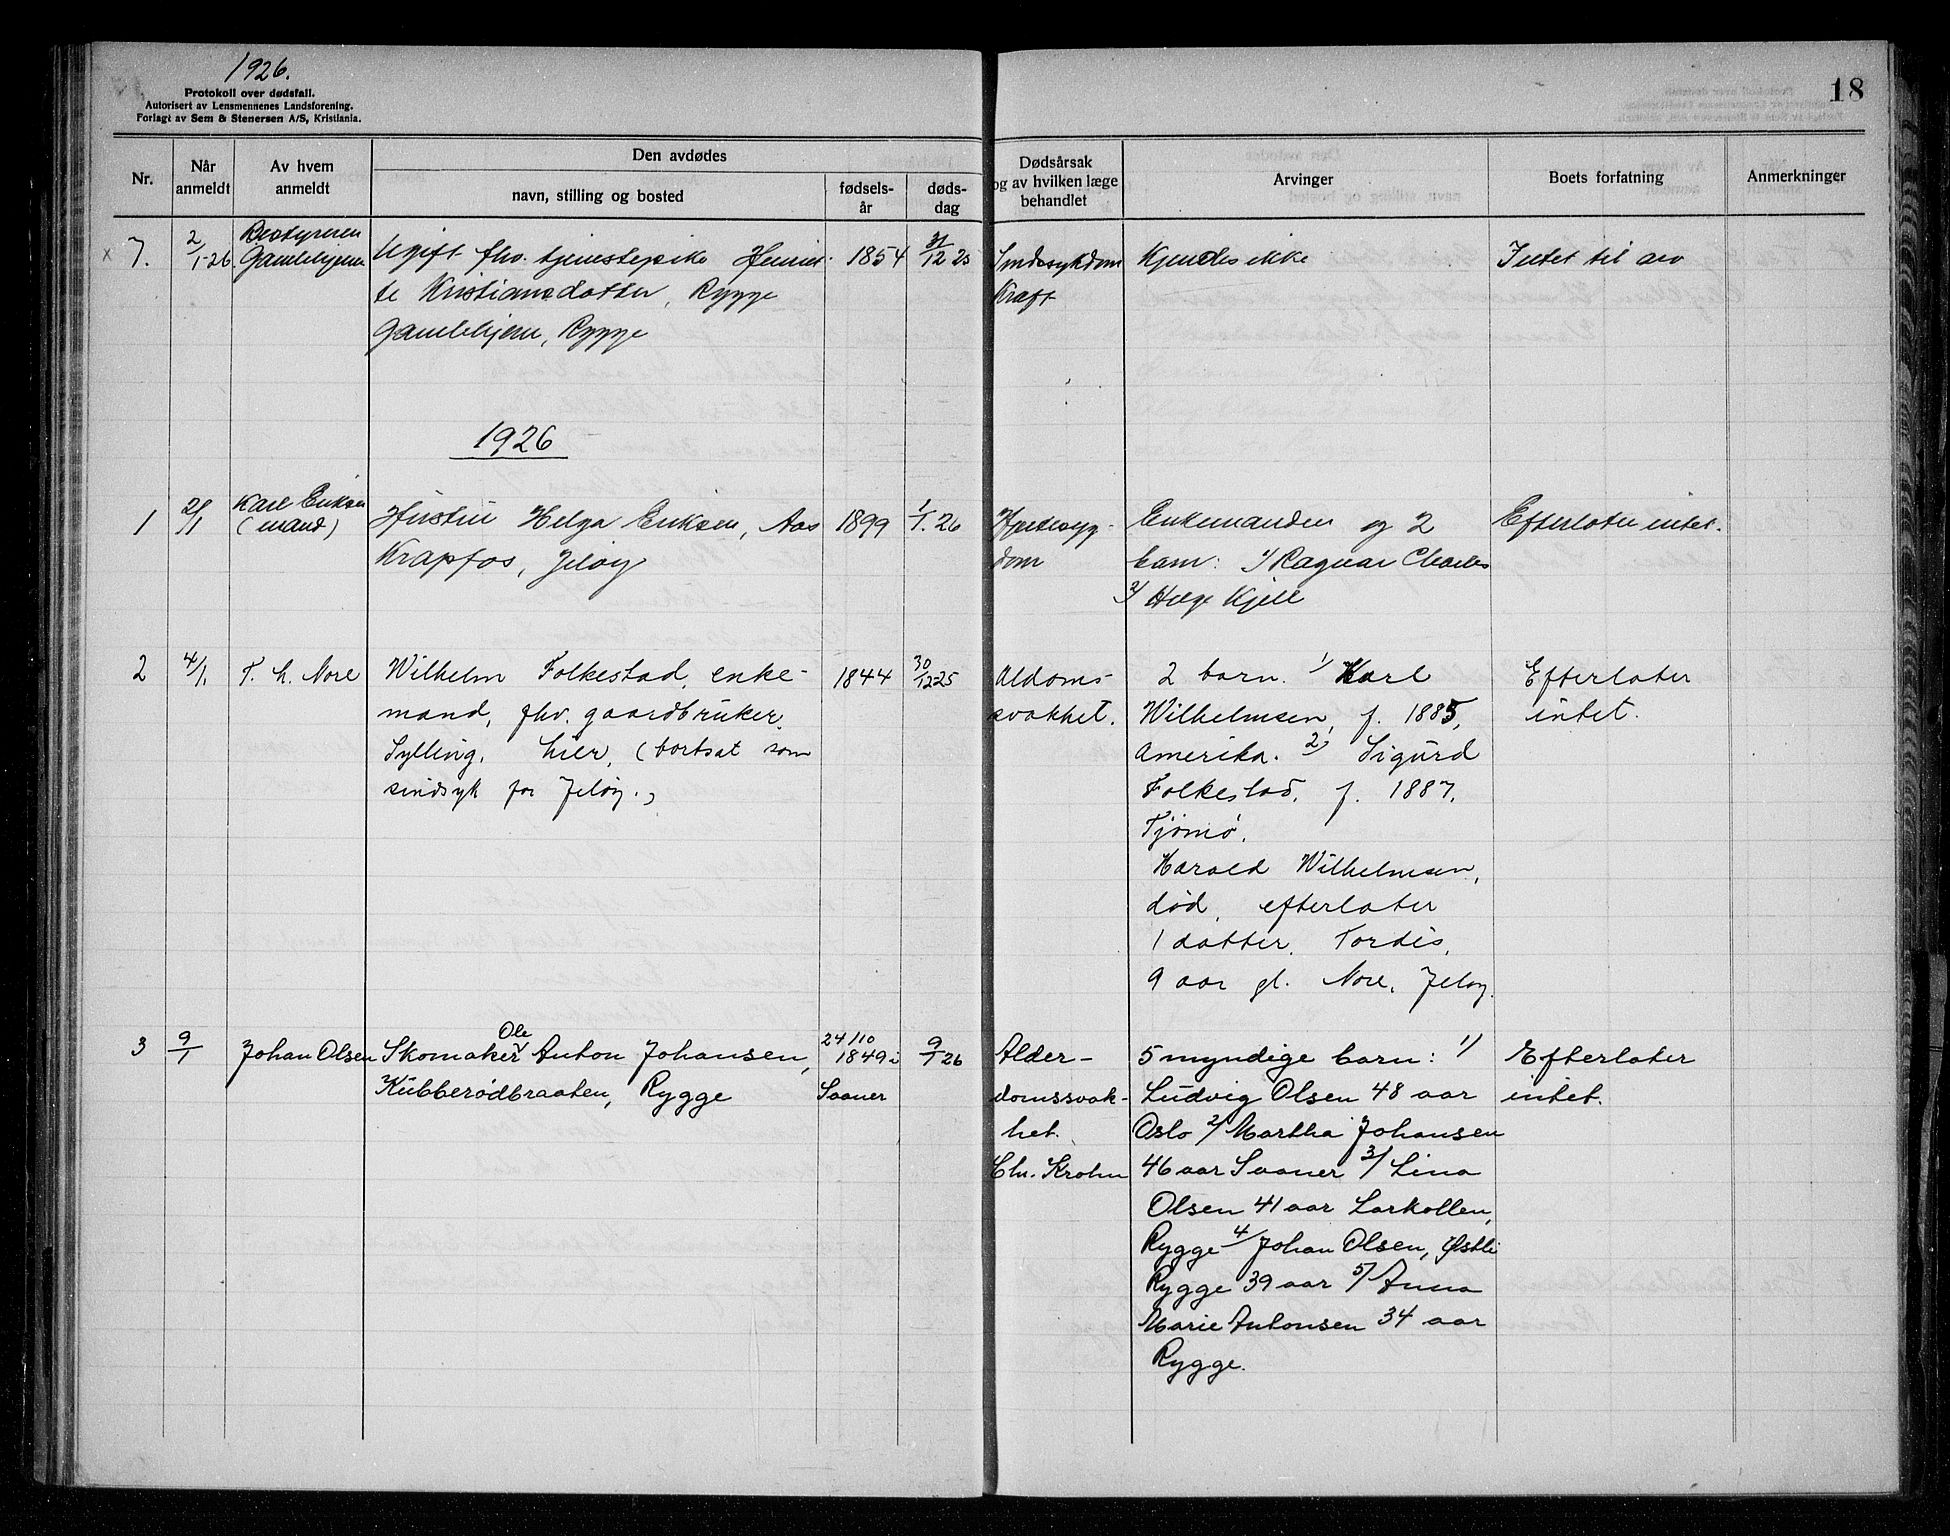 1926.
Protokoll over dødsfall.
Autorisert av Lensmennenes Landsforening.
Forlagt av Sem & Stenersen A/S, Kristiania.
18
Nr.
Når anmeldt
Av hvem anmeldt
Den avdødes
navn, stilling og bosted
fødsels-år
døds-dag
Dødsårsak og av hvilken læge behandlet
Arvinger
Boets forfatning
Anmerkninger
x 7.
2/1-26.
Bestyreren
Gamlehjem
Ugift fhv. tjenestepike Henriet-
te Kristiansdatter, Rygge
Gamlehjem, Rygge
1854
31/12 25
Sindssykdom
Kraft
Kjendes ikke
Intet til arv
1926
1
2/1
Karl Eriksen
(mand)
Hustru Helga Eriksen, Aas
Krapfos, Jeløy
1899
1/1. 26
Hjertesyg-
dom
Enkemanden og 2
barn: 1/ Ragnar Charles
2/ Helge Kjell
Efterlater intet.
2
4/1.
T. H. Nore
Wilhelm Folkestad, enke-
mand, fhv. gaardbruker,
Sylling, Lier, (bortsat som
sindsyk for Jeløy.)
1844
30/12 25
Aldoms-
svakhet.
2 barn. 1/ Karl
Wilhelmsen, f. 1885,
Amerika. 2/ Sigurd
Folkestad, f. 1887,
Tjømø.
Harald Wilhelmsen,
død, efterlater
1 datter, Tordis,
9 aar gl. Nore, Jeløy.
Efterlater
intet.
3
9/1
Johan Olsen
Ole
Skomaker Anton Johansen,
Kubberødbraaten, Rygge
24/10
1849 i
Saaner
9/1 26
Alder-
domssvak-
het.
Chr. Krohn
5 myndige barn: 1/
Ludvig Olsen 48 aar
Oslo 2/ Martha Johansen
46 aar Saaner 3/ Lina
Olsen 41 aar Larkollen,
Rygge 4/ Johan Olsen, Østli
Rygge 39 aar 5/ Anna
Marie Antonsen 34 aar
Rygge.
Efterlater
intet.